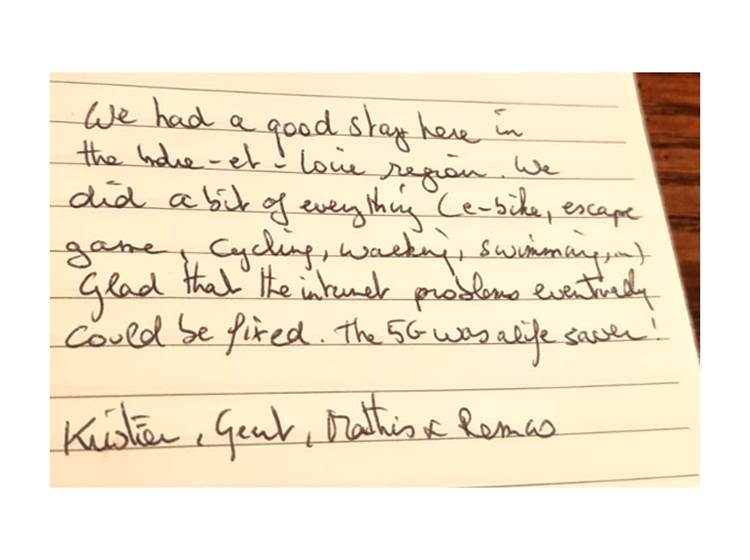 We had a good stay here in
the Indre-et-Loire region. We
did a bit of everything (e-bike, escape
game, cycling, walking, swimming, ...)
Glad that the internet problems eventually
could be fixed. The 5G was a life saver!
Kristien, Geert, Mathis & Remco